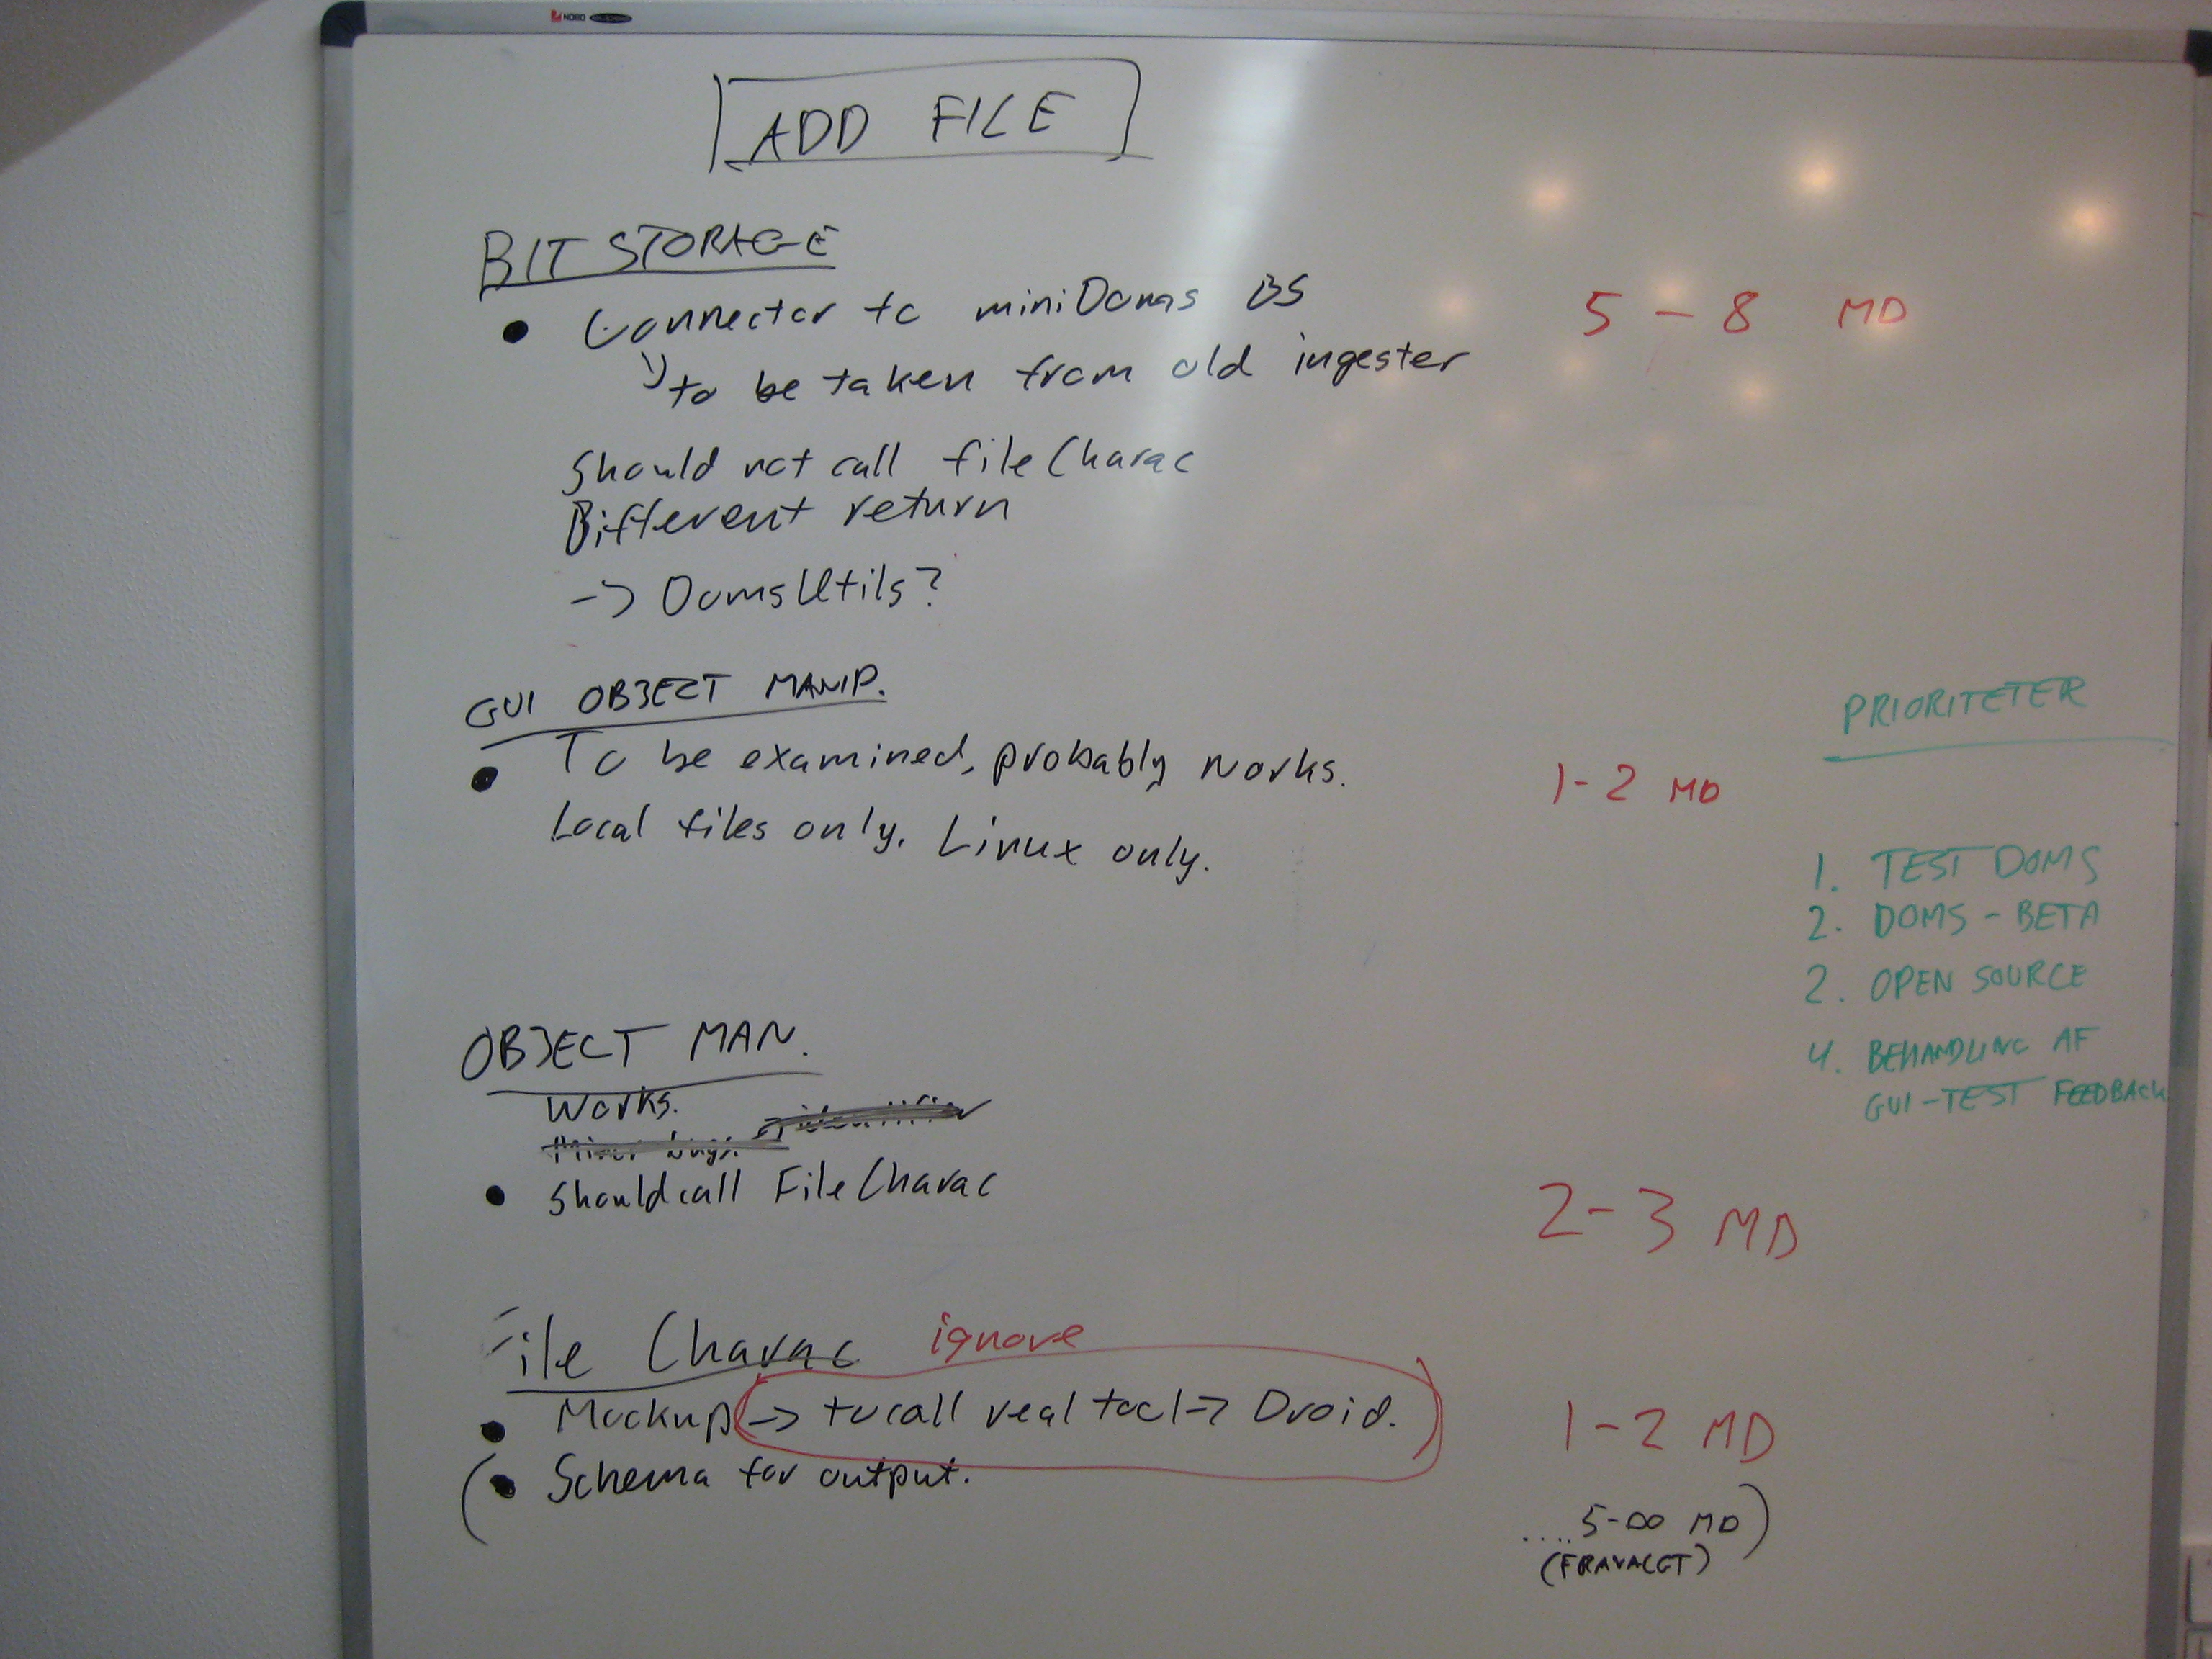 NOBO
ADD FILE
BIT STORAGE
• Connector to miniDoms BS
to be taken from old ingester
5 - 8 MD
Should not call fileCharac
Different return
-> DomsUtils?
GUI OBJECT MANIP.
• To be examined, probably works.
Local files only. Linux only.
1-2 MD
PRIORITETER
1. TEST DOMS
2. DOMS - BETA
2. OPEN SOURCE
4. BEHANDLING AF
GUI-TEST FEEDBACK
OBJECT MAN.
Works.
Minor bugs.
• Should call FileCharac
2-3 MD
File Charac ignore
• Mockup -> to call real tool -> Droid.
1-2 MD
(• Schema for output.
.... 5-∞ MD)
(FRAVALGT)